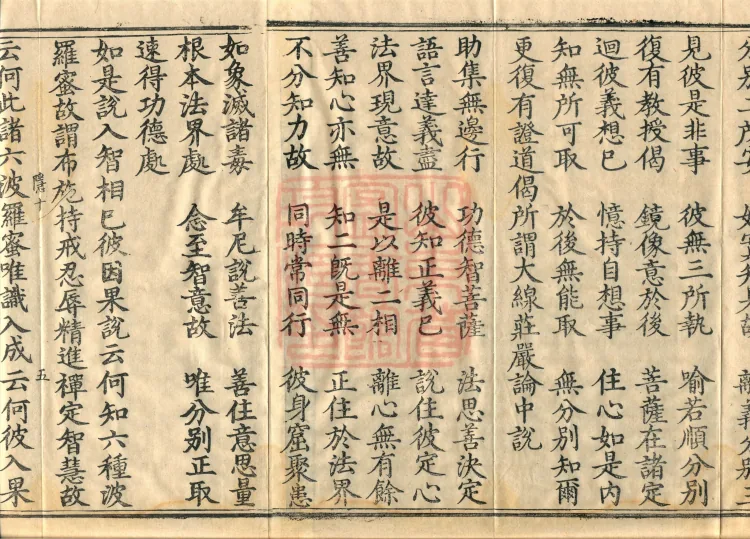 見彼是非事　彼無三所執　喻若順分別
復有教授偈　鏡像意於後　菩薩在諸定
迴彼義想已　憶持自想事　住心如是內
知無所可取　於後無能取　無分別知爾
更復有證道偈所謂大線莊嚴論中說
助集無邊行　功德智菩薩　法思善決定
語言達義盡　彼知正義已　說住彼定心
法界現意故　是以離二相　離心無有餘
善知心亦無　知二既是無　正住於法界
不分知力故　同時常同行　彼身窟聚患
如象滅諸毒　牟尼說善法　善住意思量
根本法界處　念至智意故　唯分別正取
速得功德處
如是說入智相已彼因果說云何知六種波
羅蜜故謂布施持戒忍辱精進禪定智慧故
五
云何此諸六波羅蜜唯識入成云何彼入果